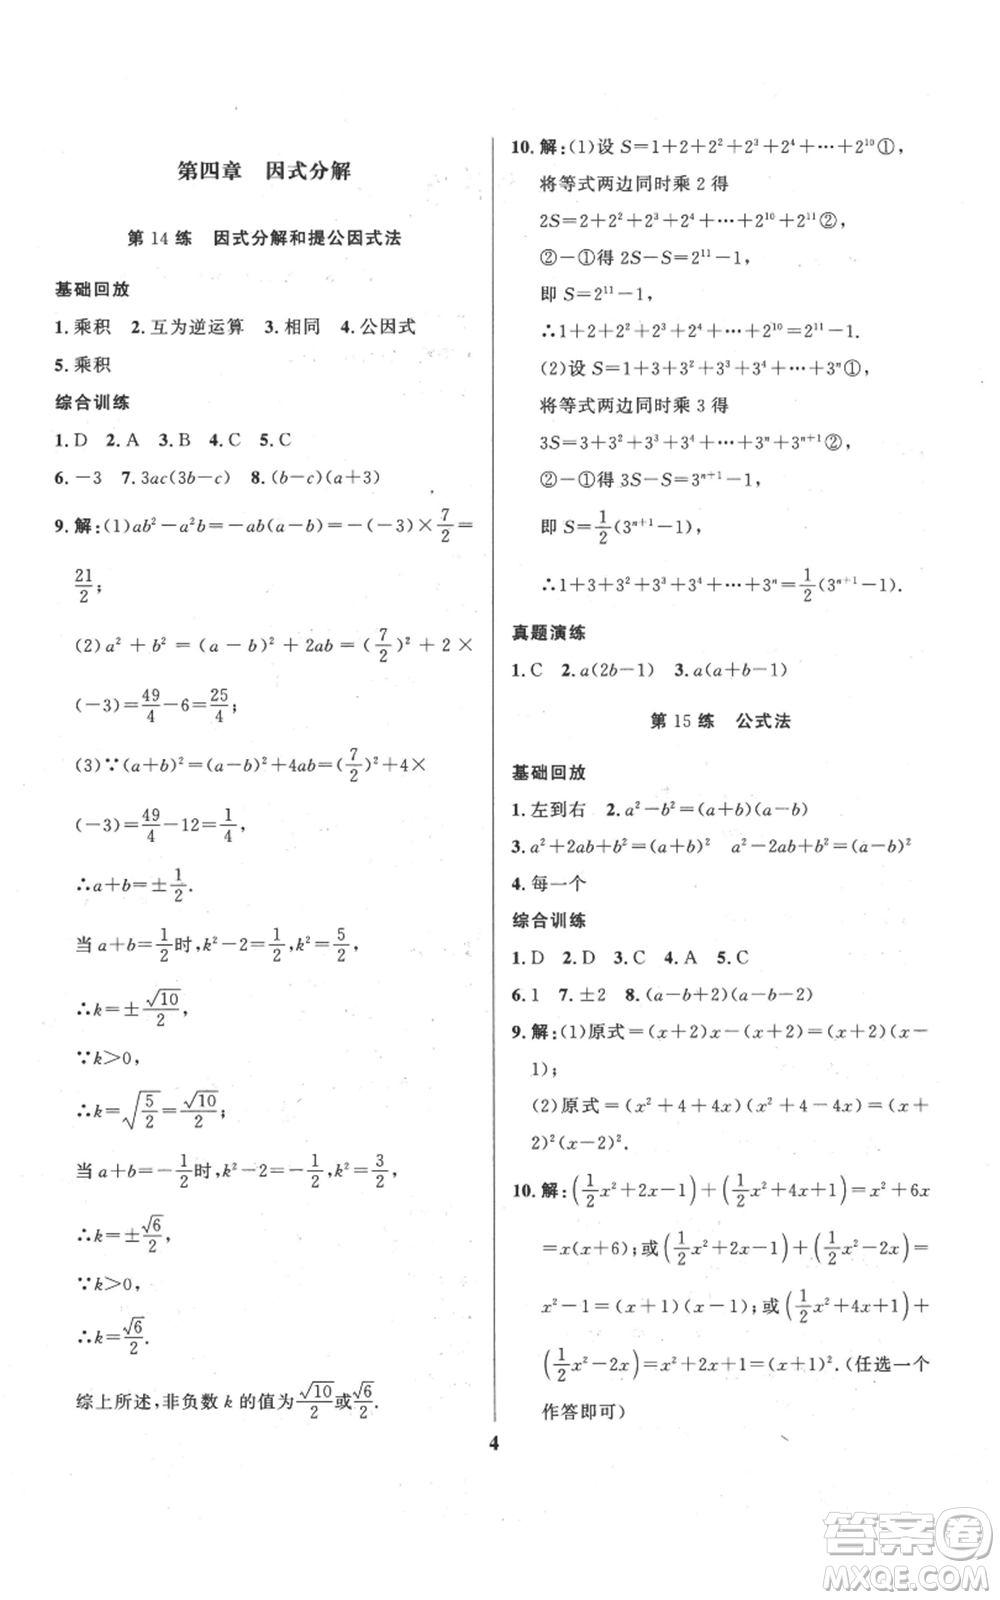 第四章 因式分解
第 14 练 因式分解和提公因式法
基础回放
1.乘积 2.互为逆运算 3.相同 4.公因式
5.乘积
综合训练
1.D 2.A 3.B 4.C 5.C
6.-3 7.3ac(3b-c) 8.(b-c)(a+3)
9.解:(1)ab²-a²b=-ab(a-b)=-(-3)×7/2=
21/2;
(2)a²+b²=(a-b)²+2ab=(7/2)²+2×
(-3)=49/4-6=25/4;
(3)∵(a+b)²=(a-b)²+4ab=(7/2)²+4×
(-3)=49/4-12=1/4,
∴a+b=±1/2.
当 a+b=1/2时,k²-2=1/2,k²=5/2,
∴k=±√10/2,
∵k>0,
∴k=√(5/2)=√10/2;
当 a+b=-1/2时,k²-2=-1/2,k²=3/2,
∴k=±√6/2,
∵k>0,
∴k=√6/2.
综上所述,非负数 k 的值为√10/2或√6/2.
10.解:(1)设 S=1+2+2²+2³+2⁴+…+2¹⁰①,
将等式两边同时乘 2 得
2S=2+2²+2³+2⁴+…+2¹⁰+2¹¹②,
②-①得 2S-S=2¹¹-1,
即 S=2¹¹-1,
∴1+2+2²+2³+2⁴+…+2¹⁰=2¹¹-1.
(2)设 S=1+3+3²+3³+3⁴+…+3ⁿ①,
将等式两边同时乘 3 得
3S=3+3²+3³+3⁴+…+3ⁿ+3ⁿ⁺¹②,
②-①得 3S-S=3ⁿ⁺¹-1,
即 S=1/2(3ⁿ⁺¹-1),
∴1+3+3²+3³+3⁴+…+3ⁿ=1/2(3ⁿ⁺¹-1).
真题演练
1.C 2.a(2b-1) 3.a(a+b-1)
第 15 练 公式法
基础回放
1.左到右 2.a²-b²=(a+b)(a-b)
3.a²+2ab+b²=(a+b)² a²-2ab+b²=(a-b)²
4.每一个
综合训练
1.D 2.D 3.C 4.A 5.C
6.1 7.±2 8.(a-b+2)(a-b-2)
9.解:(1)原式=(x+2)x-(x+2)=(x+2)(x-
1);
(2)原式=(x²+4+4x)(x²+4-4x)=(x+
2)²(x-2)².
10.解:(1/2x²+2x-1)+(1/2x²+4x+1)=x²+6x
=x(x+6);或(1/2x²+2x-1)+(1/2x²-2x)=
x²-1=(x+1)(x-1);或(1/2x²+4x+1)+
(1/2x²-2x)=x²+2x+1=(x+1)².(任选一个
作答即可)
4
答案圈
MXQE.COM